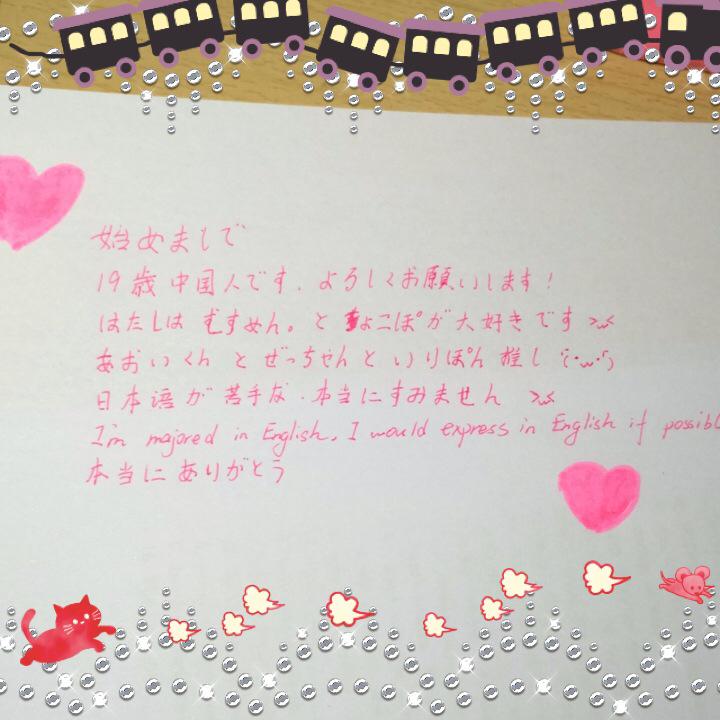 始めまして
19歳 中国人です. よろしくお願いします!
はたしは むすめん。と ちょこぽが大好きです ><
あおいくん と ぜっちゃんと いりぽん 推し (･ω･)
日本語が 苦手な. 本当にすみません ><
I'm majored in English. I would express in English if possibl
本当に ありがとう